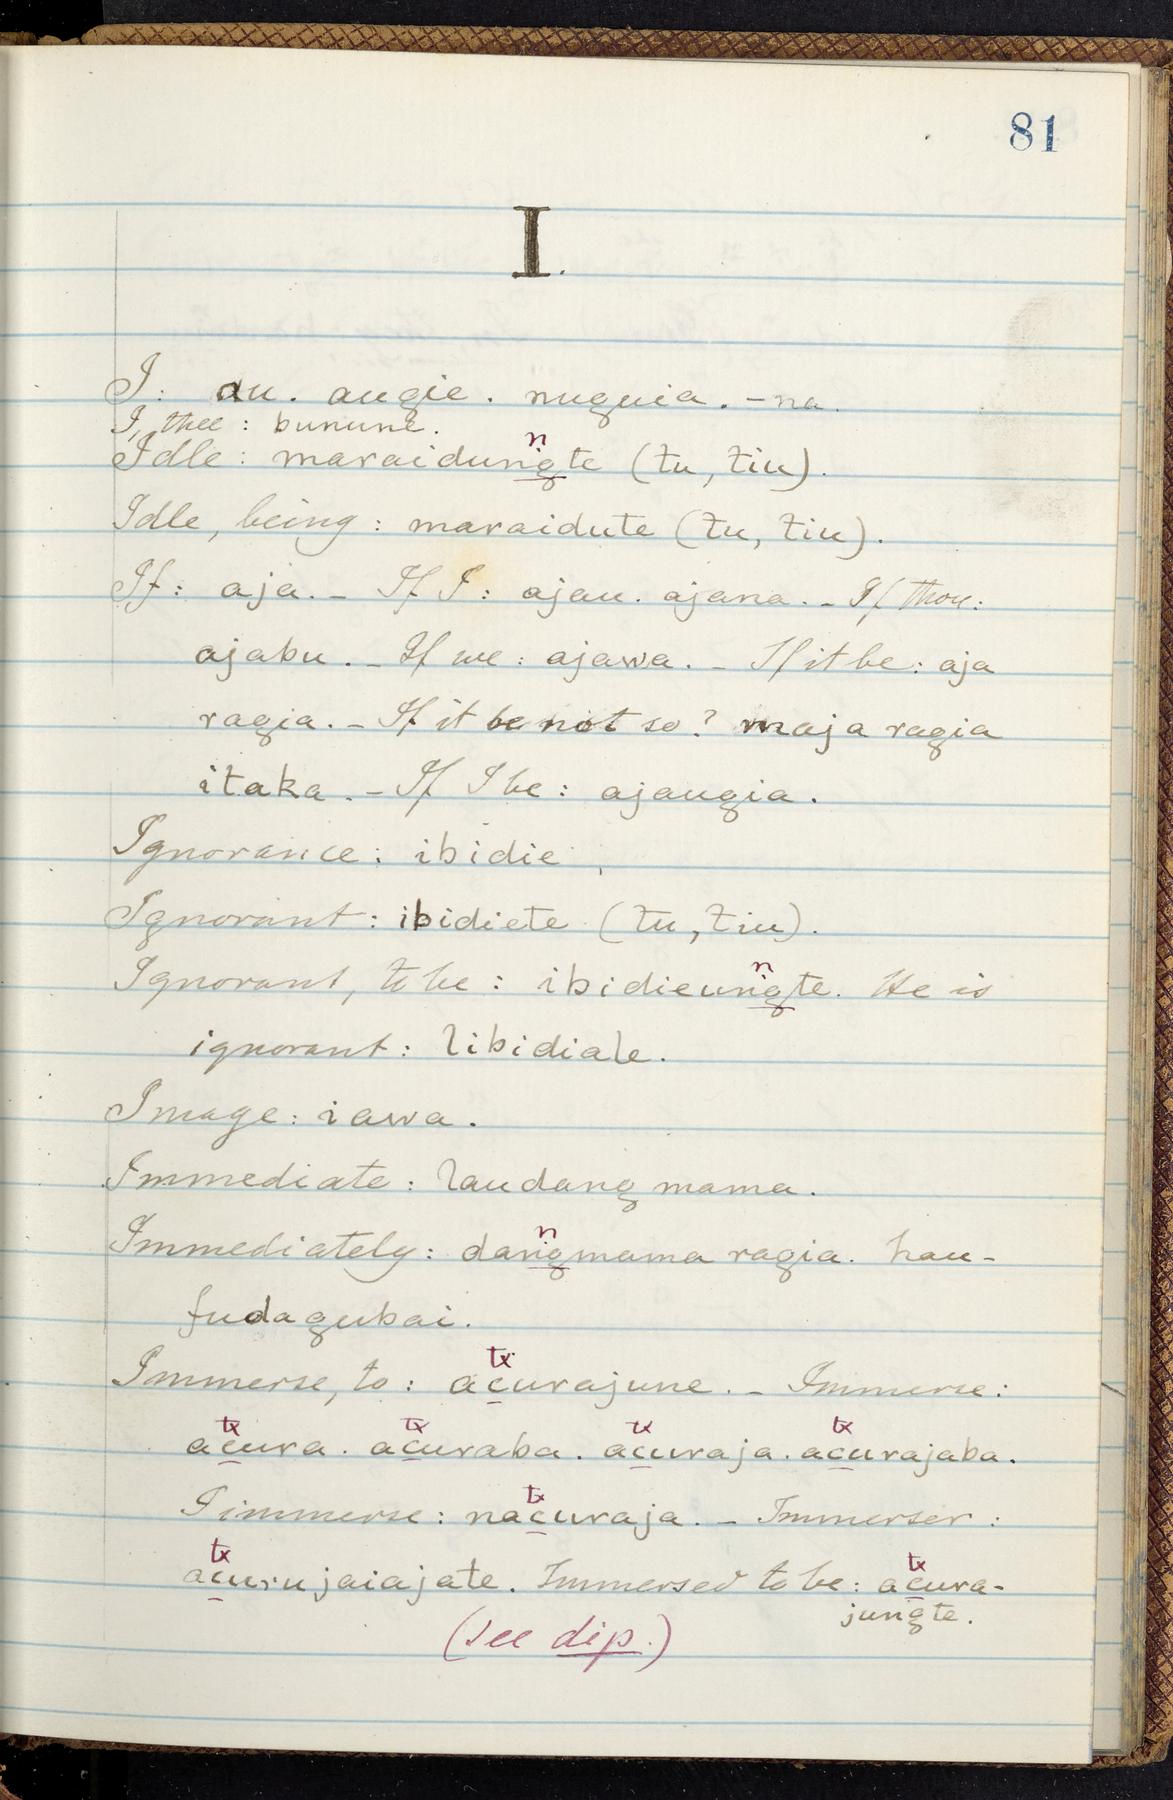 81
I.
I: au. augie. nuguia. -na.
I, thee: bunune.
n
Idle: maraidungte (tu, tiu).
Idle, being: maraidute (tu, tiu).
If: aja. - If I: ajau. ajana. - If thou:
ajabu. - If we: ajawa. - If it be: aja
ragia. - If it be not so? maja ragia
itaka. - If I be: ajaugia.
Ignorance: ibidie.
Ignorant: ibidiete (tu, tiu).
n
Ignorant, to be: ibidieungte. He is
ignorant: libidiale.
Image: iawa.
Immediate: laudang mama.
n
Immediately: dangmama ragia. hau-
fudagubai.
tx
Immerse, to: acurajune. - Immerse:
tx tx tx tx
acura. acuraba. acuraja. acurajaba.
tx
I immerse: nacuraja. - Immerser:
tx tx
acurujaiajate. Immersed to be: acura-
jungte.
(see dip.)